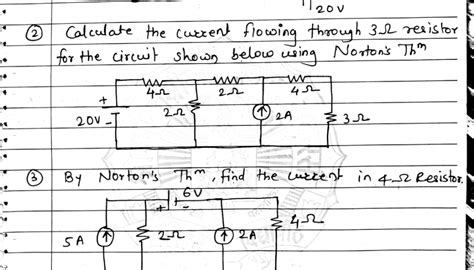 20V
② Calculate the current flowing through 3Ω resistor
for the circuit shown below using Norton's Thᵐ
4Ω 2Ω 4Ω
+
20V -
2Ω
2A
3Ω
③ By Norton's Thᵐ, find the current in 4Ω Resistor.
6V
+ -
5A
2Ω
2A
4Ω